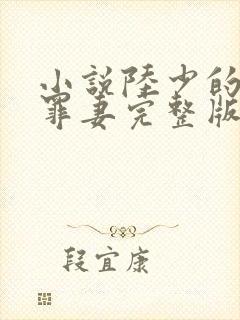 小說陸少的
罪妻完整版
段宜康